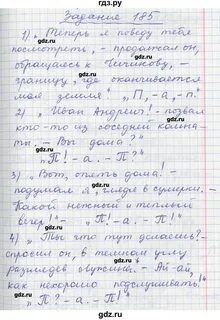 Задание 185
1) „Теперь я поведу тебя
посмотреть, - продолжал он,
обращаясь к Чичикову, -
границу, где оканчивается
моя земля" „П, - а, - п."
2) „Иван Андреич! - позвал
кто-то из соседней комна-
ты. - Вы дома?"
„П! - а. - П?"
3) „Вот, опять дома! -
подумал я, глядя в сумерки. -
Какой нежный и теплый
вечер!" - „П! - а. - П!"
4) „Ты что тут делаешь? -
спросил он, в темном углу
разглядев обжина. - Ай-ай,
как нехорошо подслушивать!"
„П? - а. - П!"